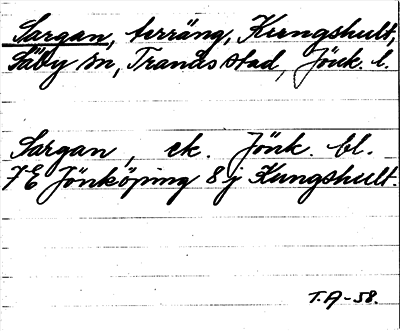 Sargan, terräng, Kungshult,
Säby sn, Tranås stad, Jönk. l.
Sargan, ek. Jönk. bl.
7E Jönköping 8 j Kungshult.
T.A-58.